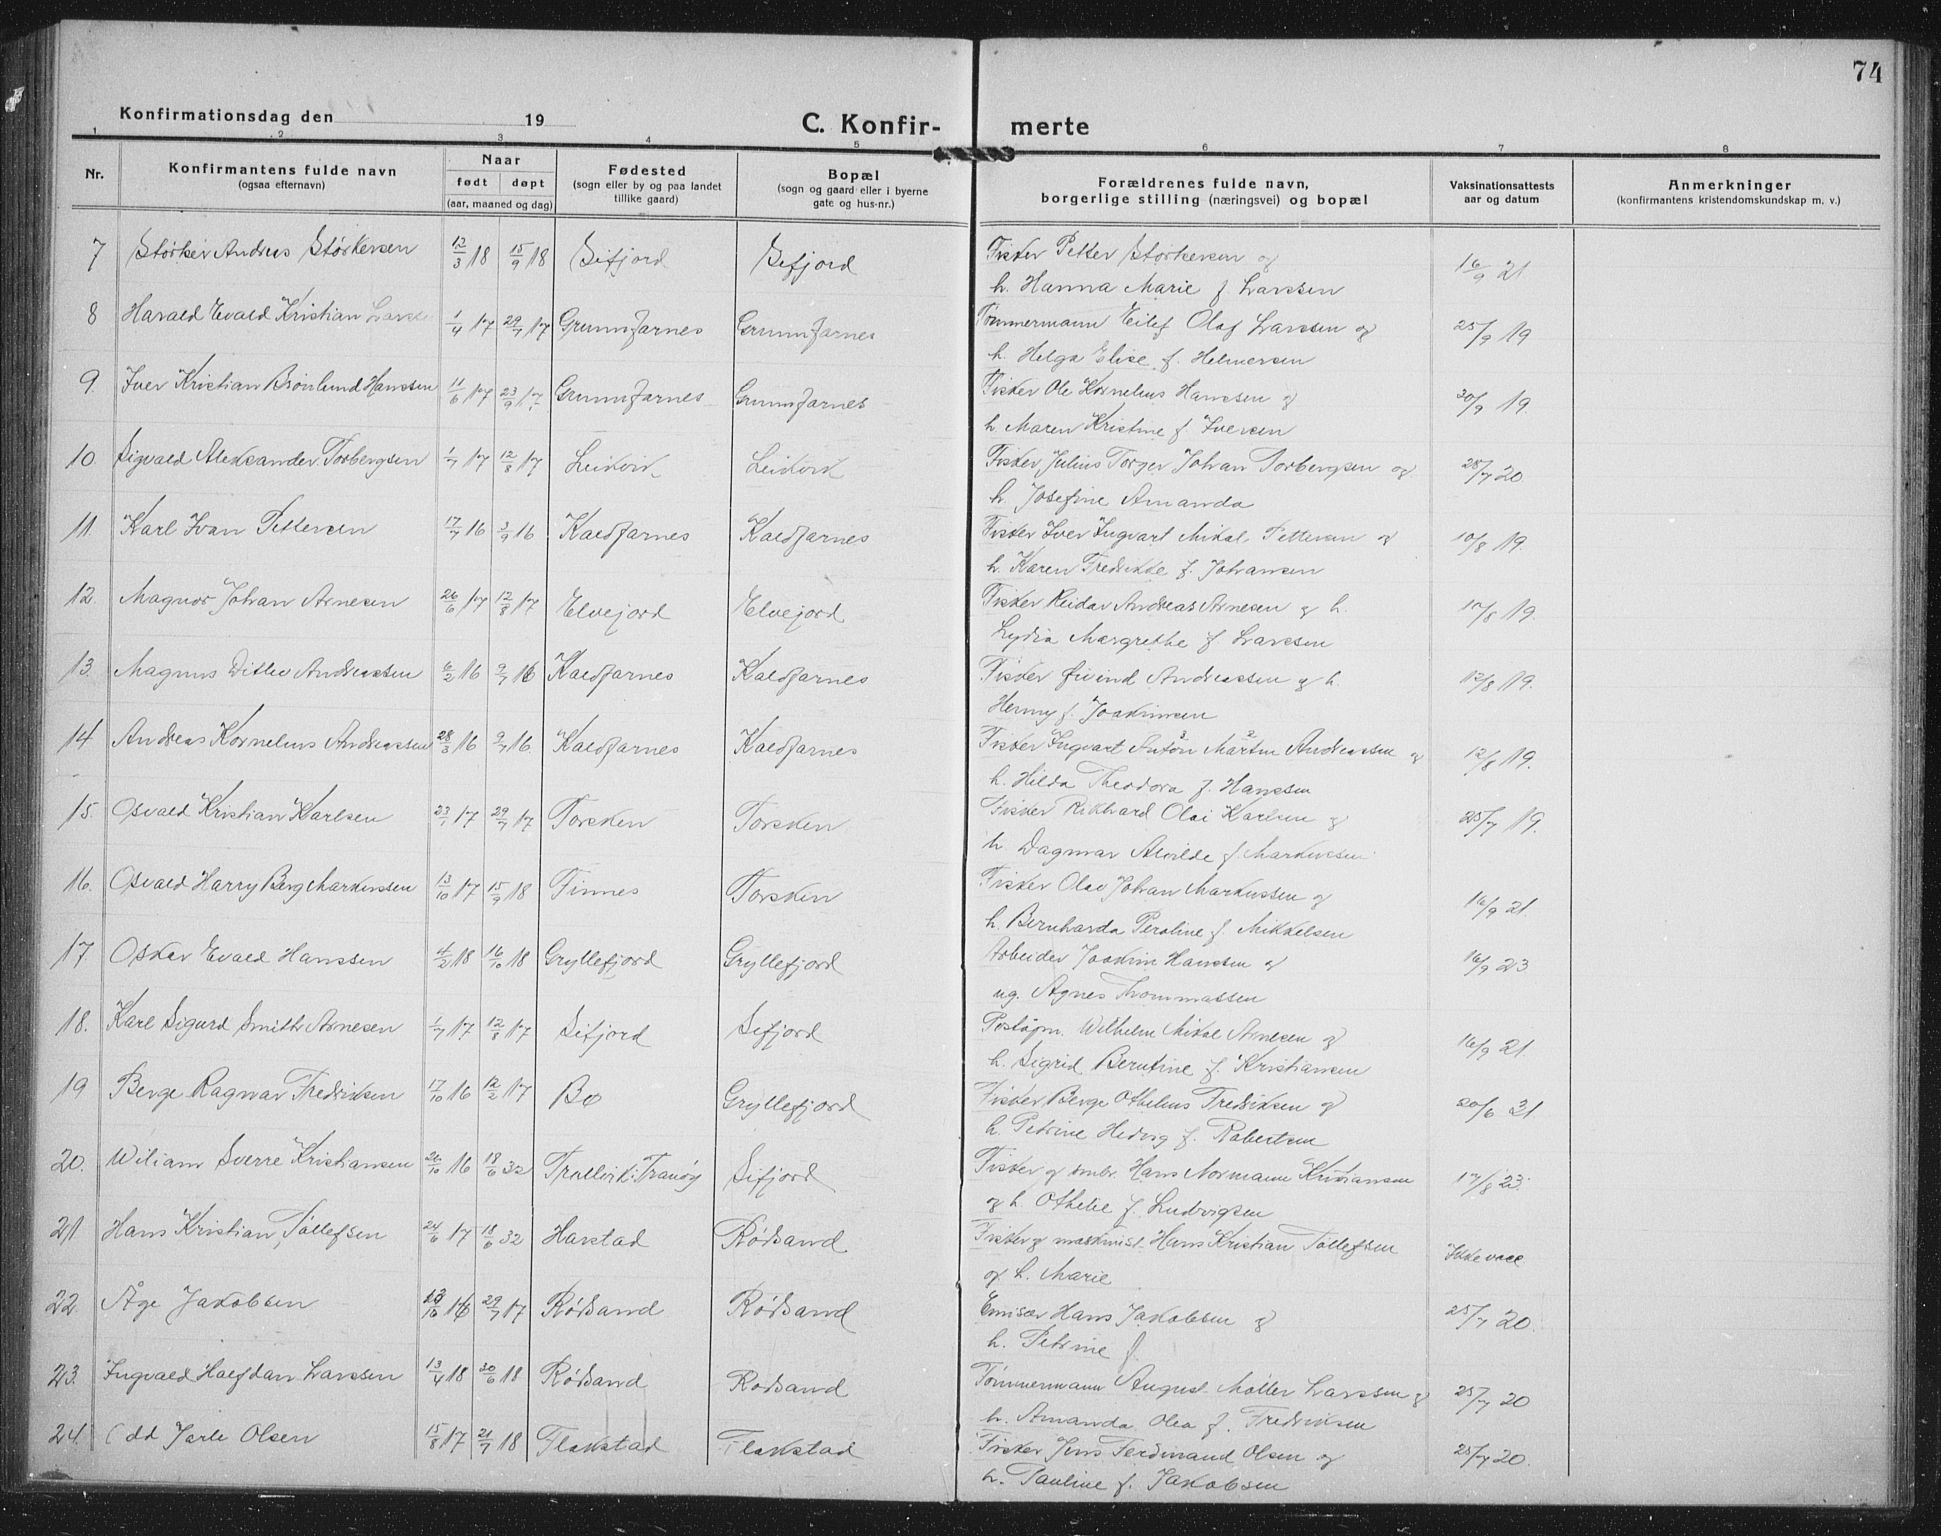 74
Konfirmationsdag den 19
C. Konfir- merte
1 2 3 4 5 6 7 8
Nr. Konfirmantens fulde navn (ogsaa efternavn) Naar født døpt (aar, maaned og dag) Fødested (sogn eller by og paa landet tillike gaard) Bopæl (sogn og gaard eller i byerne gate og hus-nr.) Forældrenes fulde navn, borgerlige stilling (næringsvei) og bopæl Vaksinationsattests aar og datum Anmerkninger (konfirmantens kristendomskundskap m. v.)
7 Størker Andreas Størkersen 12/3 18 15/9 18 Sifjord Sifjord Fisker Petter Størkersen og 16/9 21
h. Hanna Marie f. Larssen
8 Harald Evald Kristian Larss 1/4 17 29/7 17 Grunnfarnes Grunnfarnes Tømmermann Eilef Olaf Larssen og 25/9 19
h. Helga Elise f. Helmersen
9. Iver Kristian Brønlund Hanssen 11/6 17 23/9 17 Grunnfarnes Grunnfarnes Fisker Ole Kornelius Hanssen og 20/9 19.
h. Maren Kristine f. Iversen
10. Sigvald Aleksander Torbergsen 1/7 17 12/8 17 Leikvik Leikvik Fisker Julius Torger Johan Torbergsen og 28/7 20.
h. Josefine Amanda
11. Karl Ivan Pettersen 17/7 16 3/9 16 Kaldfarnes Kaldfarnes Fisker Iver Ingvart Mikal Pettersen og 10/8 19.
h. Karen Fredrikke f. Johansen
12. Magnor Johan Arnesen 26/6 17 12/8 17 Elvejord Elvejord Fisker Reidar Andreas Arnesen og h. 17/8 19.
Lydia Margrethe f. Larssen
13. Magnus Ditlev Andreassen 6/2 16 9/7 16 Kaldfarnes Kaldfarnes Fisker Øivind Andreassen og h. 12/8 19.
Henny f. Joakimsen
14 Andreas Kornelius Andreassen 28/3 16 9/7 16. Kaldfarnes Kaldfarnes Fisker Ingvart Anton Martin Andreassen og 12/8 19.
h. Hilda Theodora f. Hanssen
15. Osvald Kristian Karlsen 23/1 17 29/7 17 Torsken Torsken Fisker Rikhard Olai Karlsen og 25/7 19.
h. Dagmar Alvilde f. Markussen
16. Osvald Harry Berg Markussen 13/10 17 15/9 18 Finnes Torsken Fisker Olav Johan Markussen og 16/9 21.
h. Bernharda Peroline f. Mikkelsen
17 Oskar Evald Hanssen 4/2 18 16/10 18 Gryllefjord Gryllefjord Arbeider Joakim Hanssen og 16/9 23
ug. Agnes Thommassen
18. Karl Sigurd Smith Arnesen 1/7 17 12/8 17 Sifjord Sifjord Postopm. Wilhelm Mikal Arnesen og 16/9 21.
h. Sigrid Berntine f. Kristiansen
19 Berge Ragnar Fredriksen 17/10 16 12/2 17 Bø Gryllefjord Fisker Berge Othelius Fredriksen og 20/6 31
h. Petrine Hedvig f. Robertsen
20. Wiliam Sverre Kristiansen 26/10 16 18/6 32 Trollvik: Tranøy Sifjord Fisker og smbr. Hans Normann Kristiansen 17/8 23.
og h. Othelie f. Ludvigsen
21 Hans Kristian Tollefsen 24/6 17 18/6 32 Harstad Rødsand Fisker og maskinist Hans Kristian Tollefsen Ikke vacc
og h. Marie
22. Åge Jakobsen 16 29/7 17 Rødsand Rødsand Emisær Hans Jakobsen og 25/7 20.
h. Petrine f.
23. Ingvald Halfdan Larssen 13/4 18 30/6 18 Rødsand Rødsand Tømmermann August Møller Larssen og 25/7 20
h. Amanda Olea f. Fredriksen
24. Odd Jarle Olsen 15/8 17 21/7 18 Flakstad Flakstad Fisker Jens Ferdinand Olsen og 25/7 20.
h. Pauline f. Jakobsen